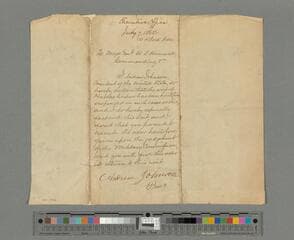 Executive Office
July 7, 1865
10 o'clock A.M.
To Major Gen'l W. S. Hancock
Commanding &c
I, Andrew Johnson
President of the United States, do
hereby declare that the writ of
Habeas Corpus has been heretofore
suspended in such cases as this
and I do hereby especially
suspend this writ, and
direct that you proceed to
execute the order heretofore
given upon the judgment
of the Military Commission
and you will give this order
in return to this writ
Andrew Johnson